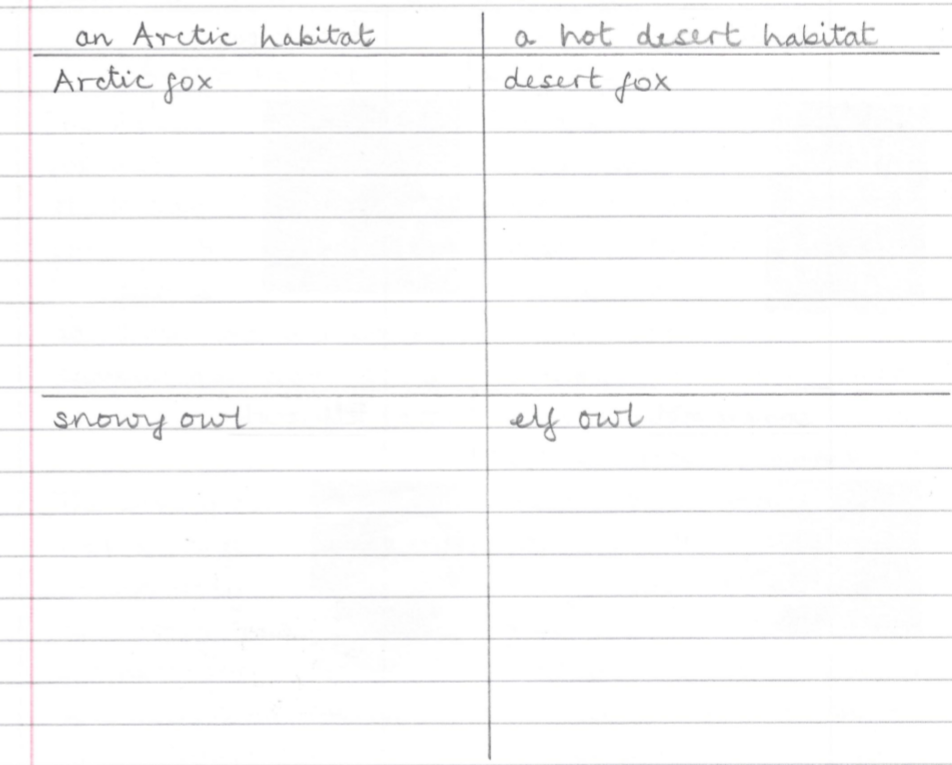 an Arctic habitat
a hot desert habitat
Arctic fox
desert fox
snowy owl
elf owl